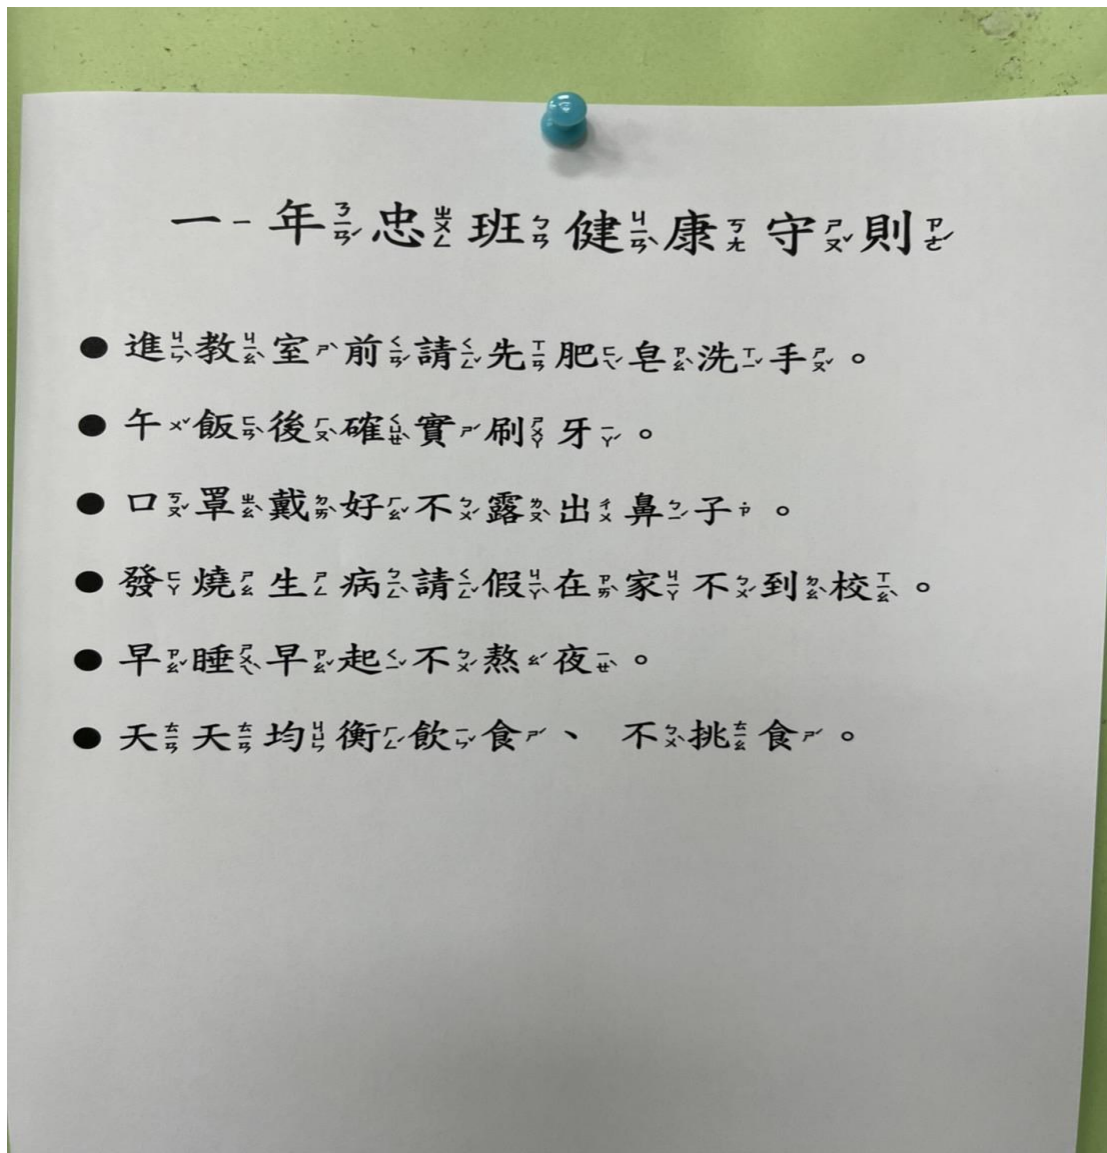 一年忠班健康守則
● 進教室前請先肥皂洗手。
● 午飯後確實刷牙。
● 口罩戴好不露出鼻子。
● 發燒生病請假在家不到校。
● 早睡早起不熬夜。
● 天天均衡飲食、 不挑食。